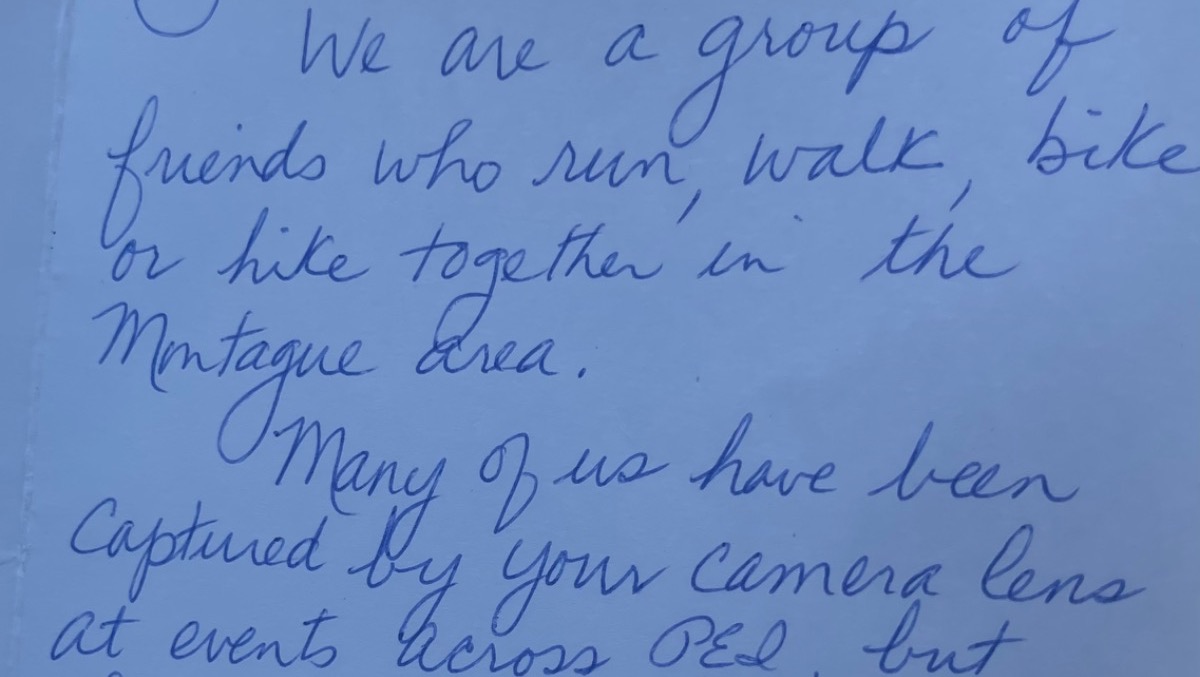 We are a group of
friends who run, walk, bike
or hike together in the
Montague area.
Many of us have been
Captured by your camera lens
at events across PEI, but